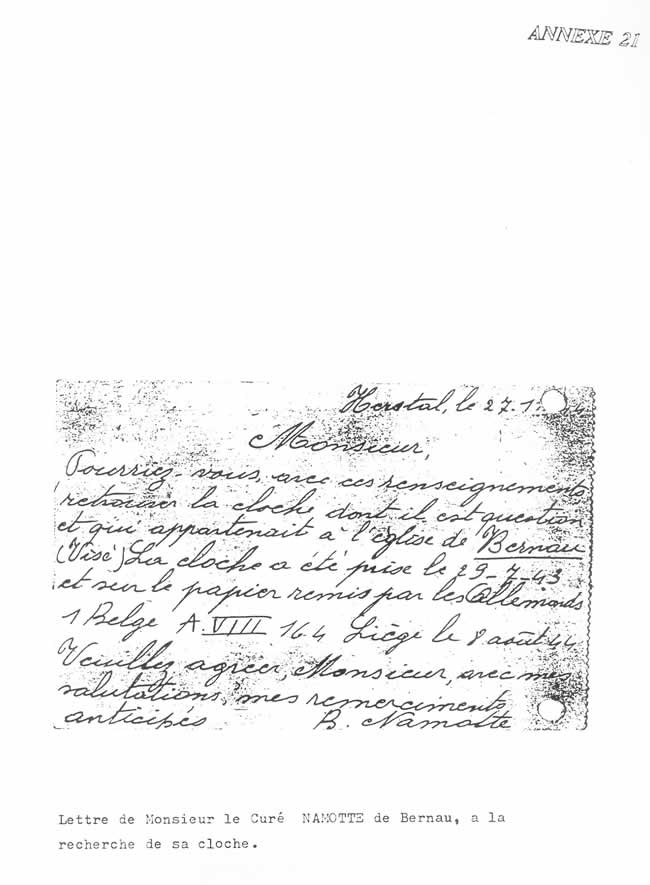 ANNEXE 21
Herstal, le 27.1
Monsieur,
Pourriez-vous, avec ces renseignements
retrouver la cloche dont il est question
et qui appartenait à l'église de Bernau
(Visé) La cloche a été prise le 29-7-43
et sur le papier remis par les Allemands
1 Belge A.VIII 164 Liège le 8 août 44
Veuillez agréer, Monsieur, avec mes
salutations, mes remerciments
anticipés B. Namotte
Lettre de Monsieur le Curé NAMOTTE de Bernau, a la
recherche de sa cloche.